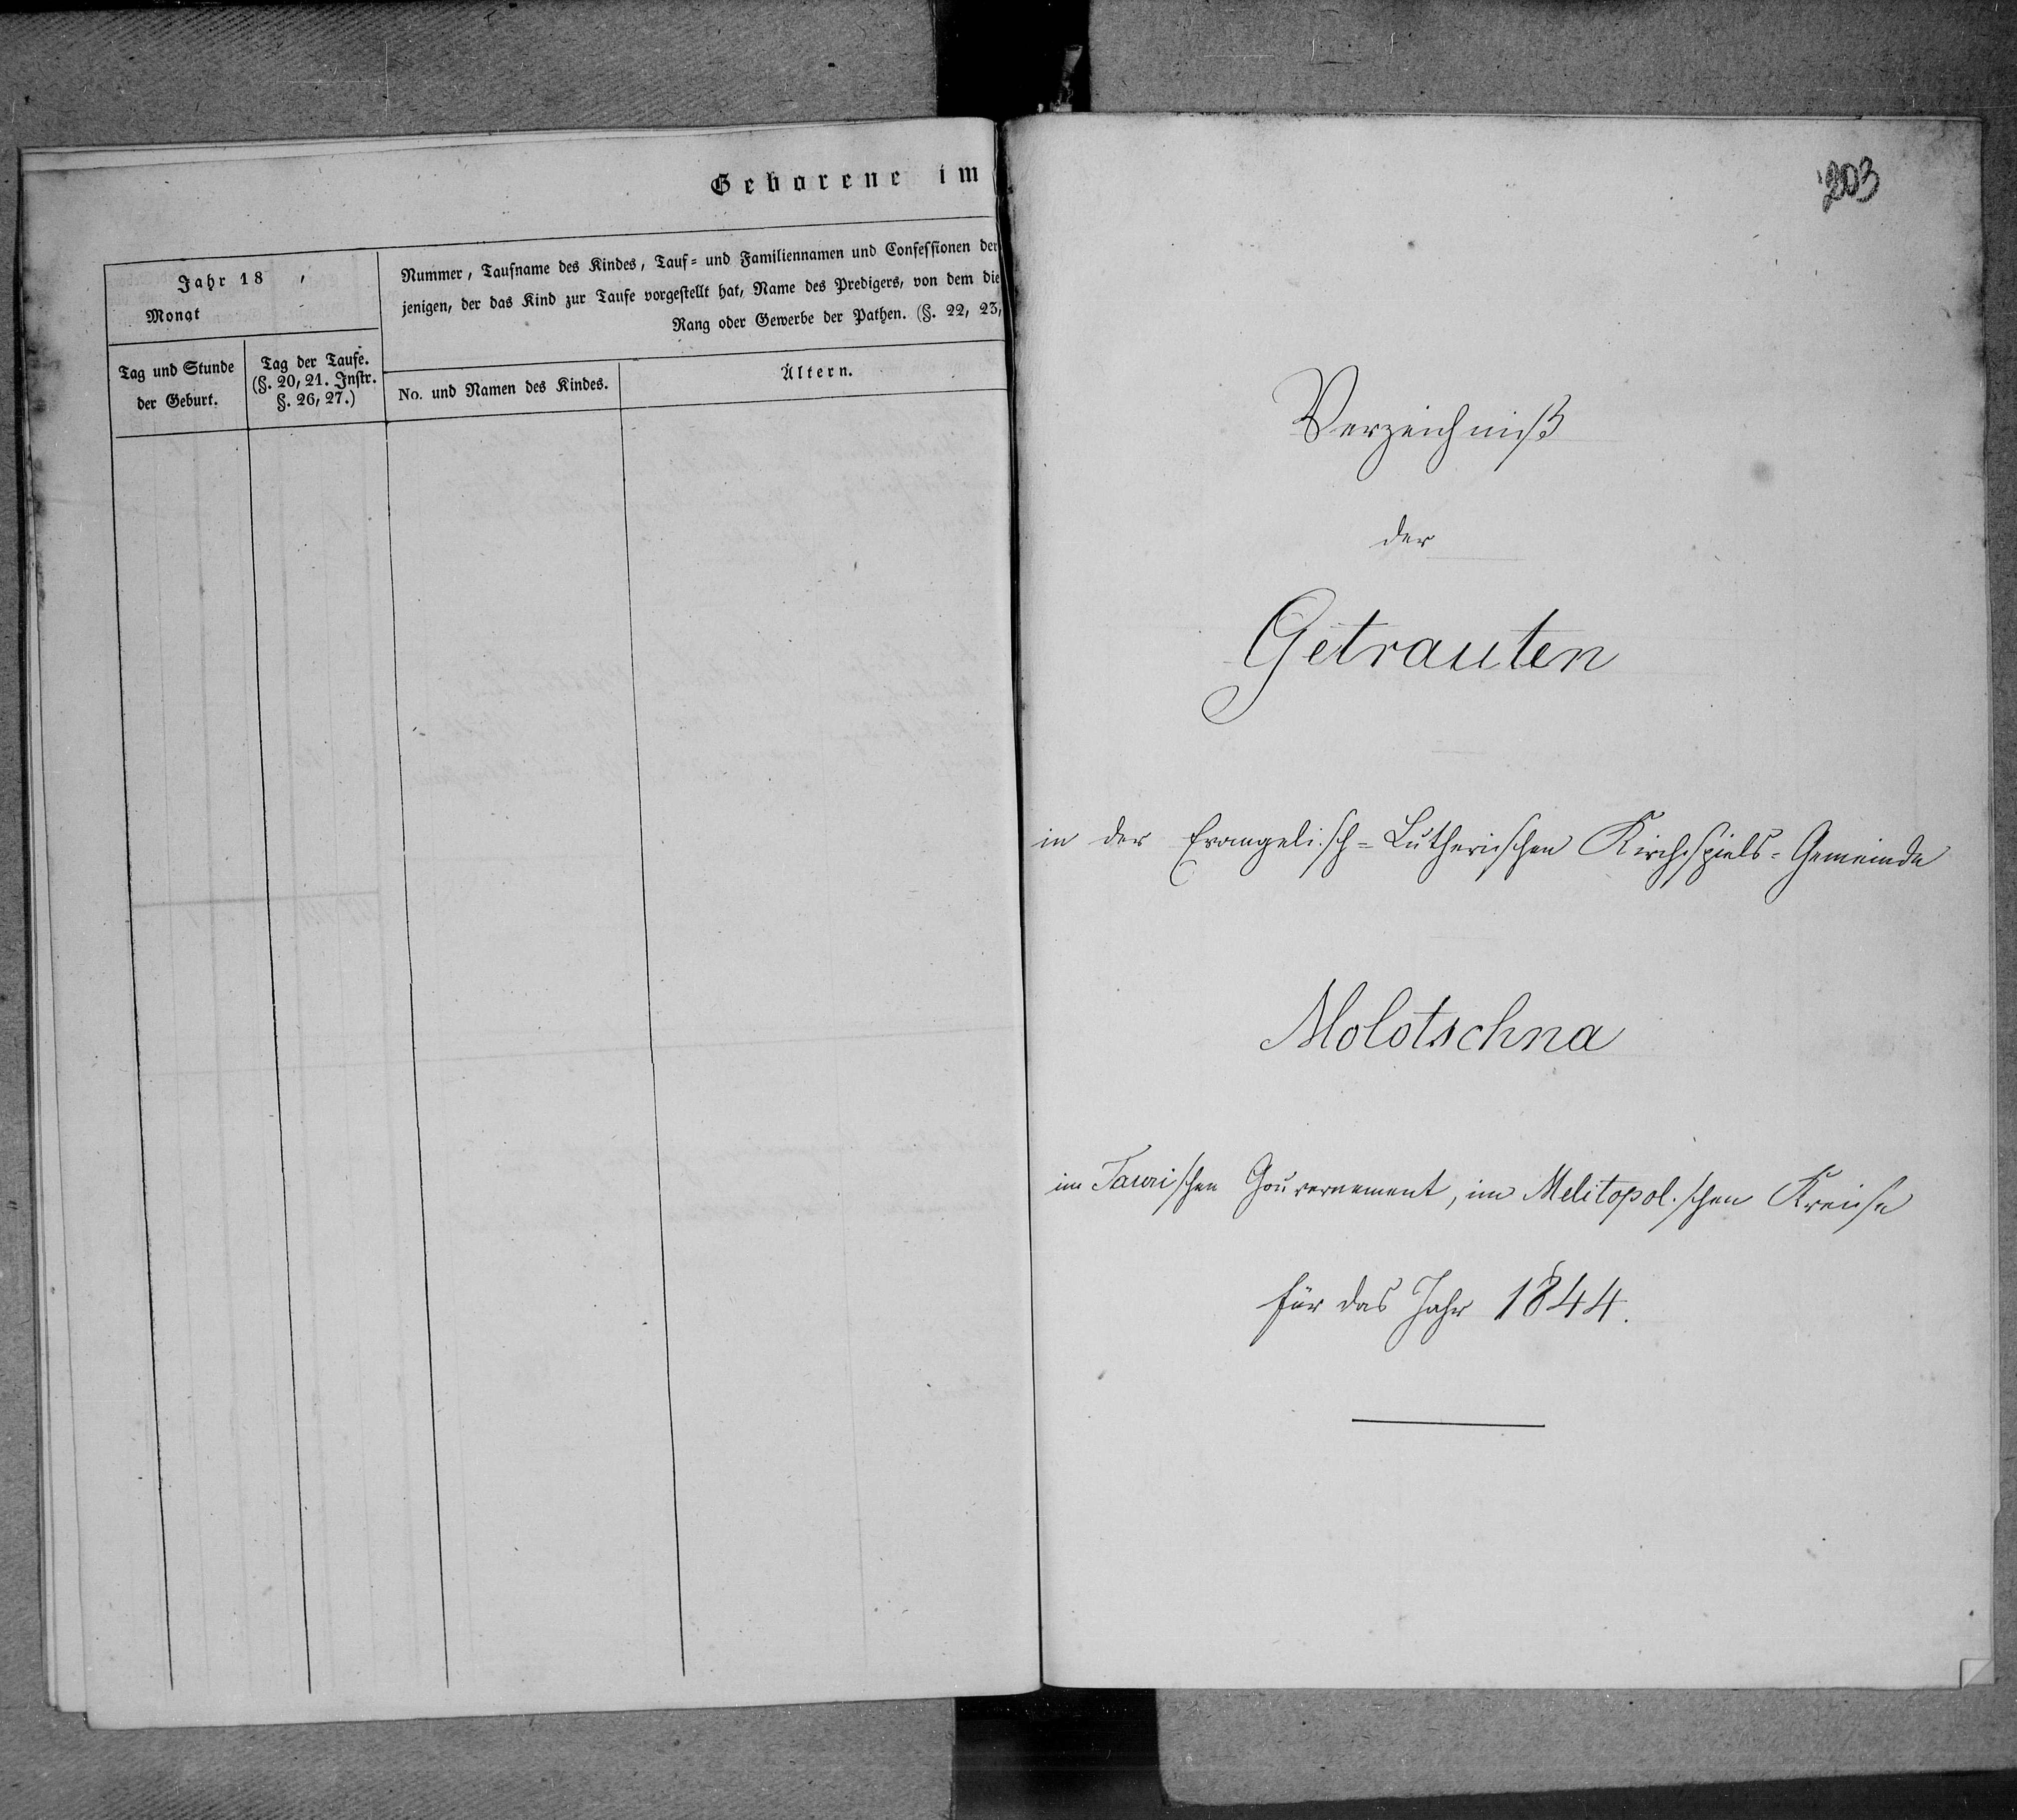 Geborene im
Jahr 18
Monat
Nummer, Taufname des Kindes, Tauf= und Familiennamen und Confessionen der
jenigen, der das Kind zur Taufe vorgestellt hat, Name des Predigers, von dem die
Rang oder Gewerbe der Pathen. (§. 22, 23,
Tag und Stunde
der Geburt.
Tag der Taufe.
(§. 20, 21. Instr.
§. 26, 27.)
No. und Namen des Kindes.
Ältern.
203
Verzeichniß
der
Getrauten
in der Evangelisch=Lutherischen Kirchspiels=Gemeinde
Molotschna
im Taurischen Gouvernement, im Melitopol.schen Kreise
für das Jahr 1844.